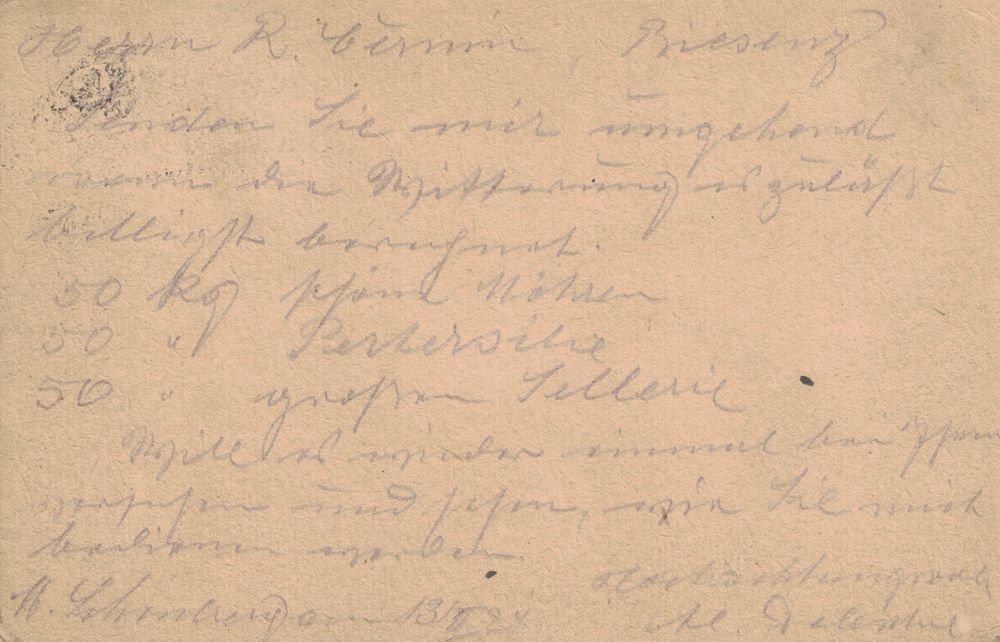 Herrn R. Czernin, Biesenz
Senden Sie mir umgehend
wenn die Witterung es zuläßt
billigst berechnet.
50 Kg schöne Möhren
50 " Pertersilie
50 " großen Sellerie
Will es wieder einmal bei Ihnen
versuchen und sehen, wie Sie mich
bedienen werden.
Hochachtungsvoll
M. Schönberg am 13/II 84